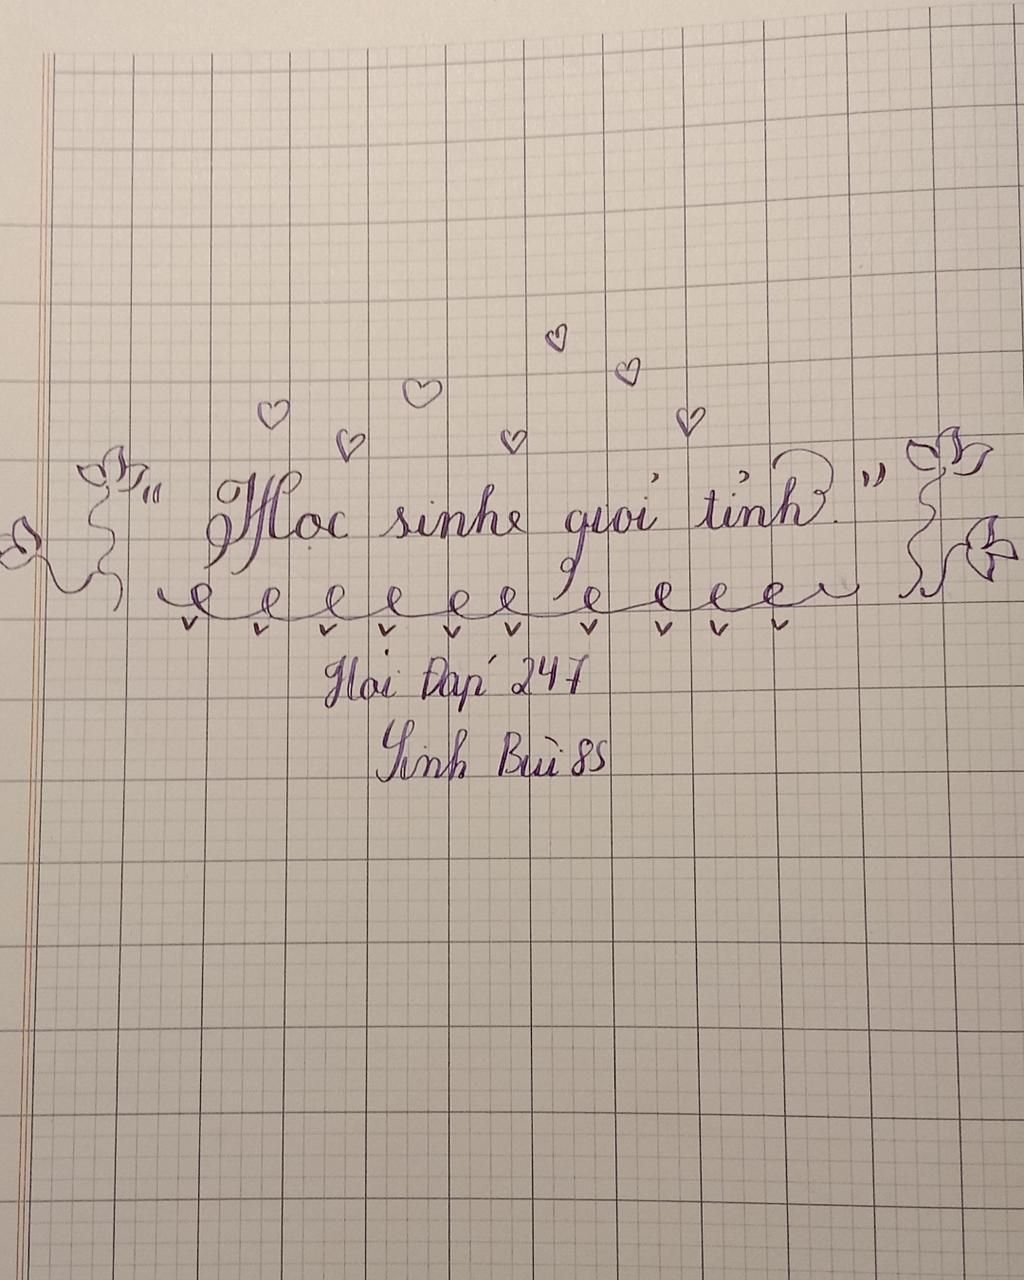 "Học sinh giỏi tỉnh"
Hỏi Đáp 247
Yinh Bùi 85